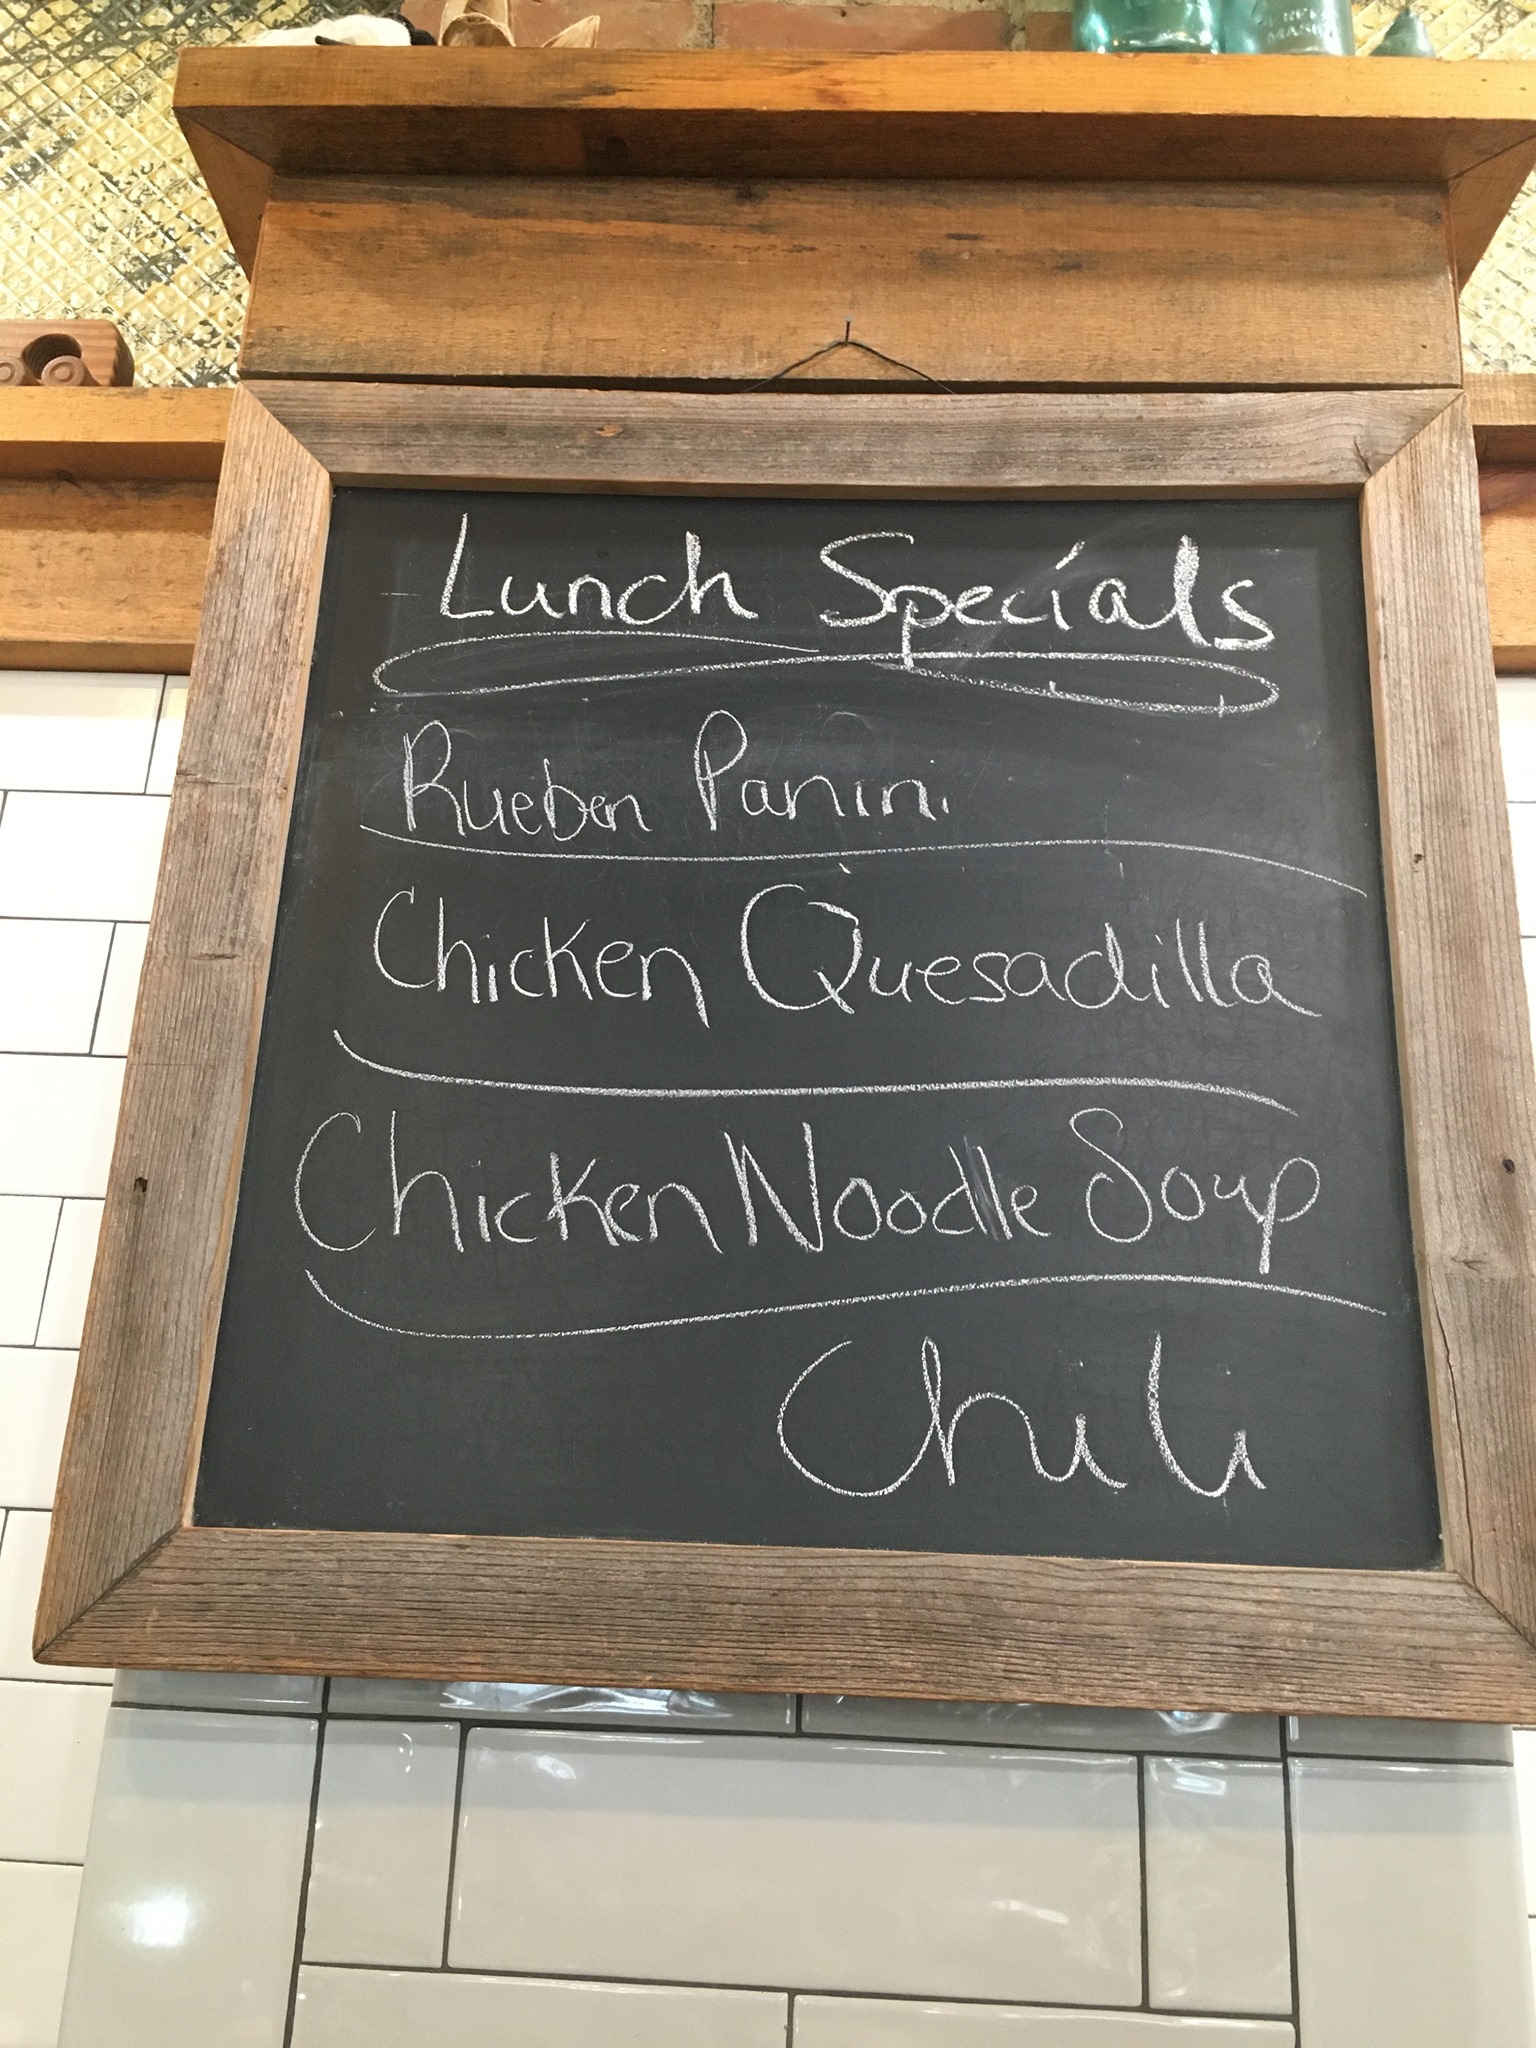 Lunch Specials
Rueben Panini
Chicken Quesadilla
Chicken Noodle Soup
Chili